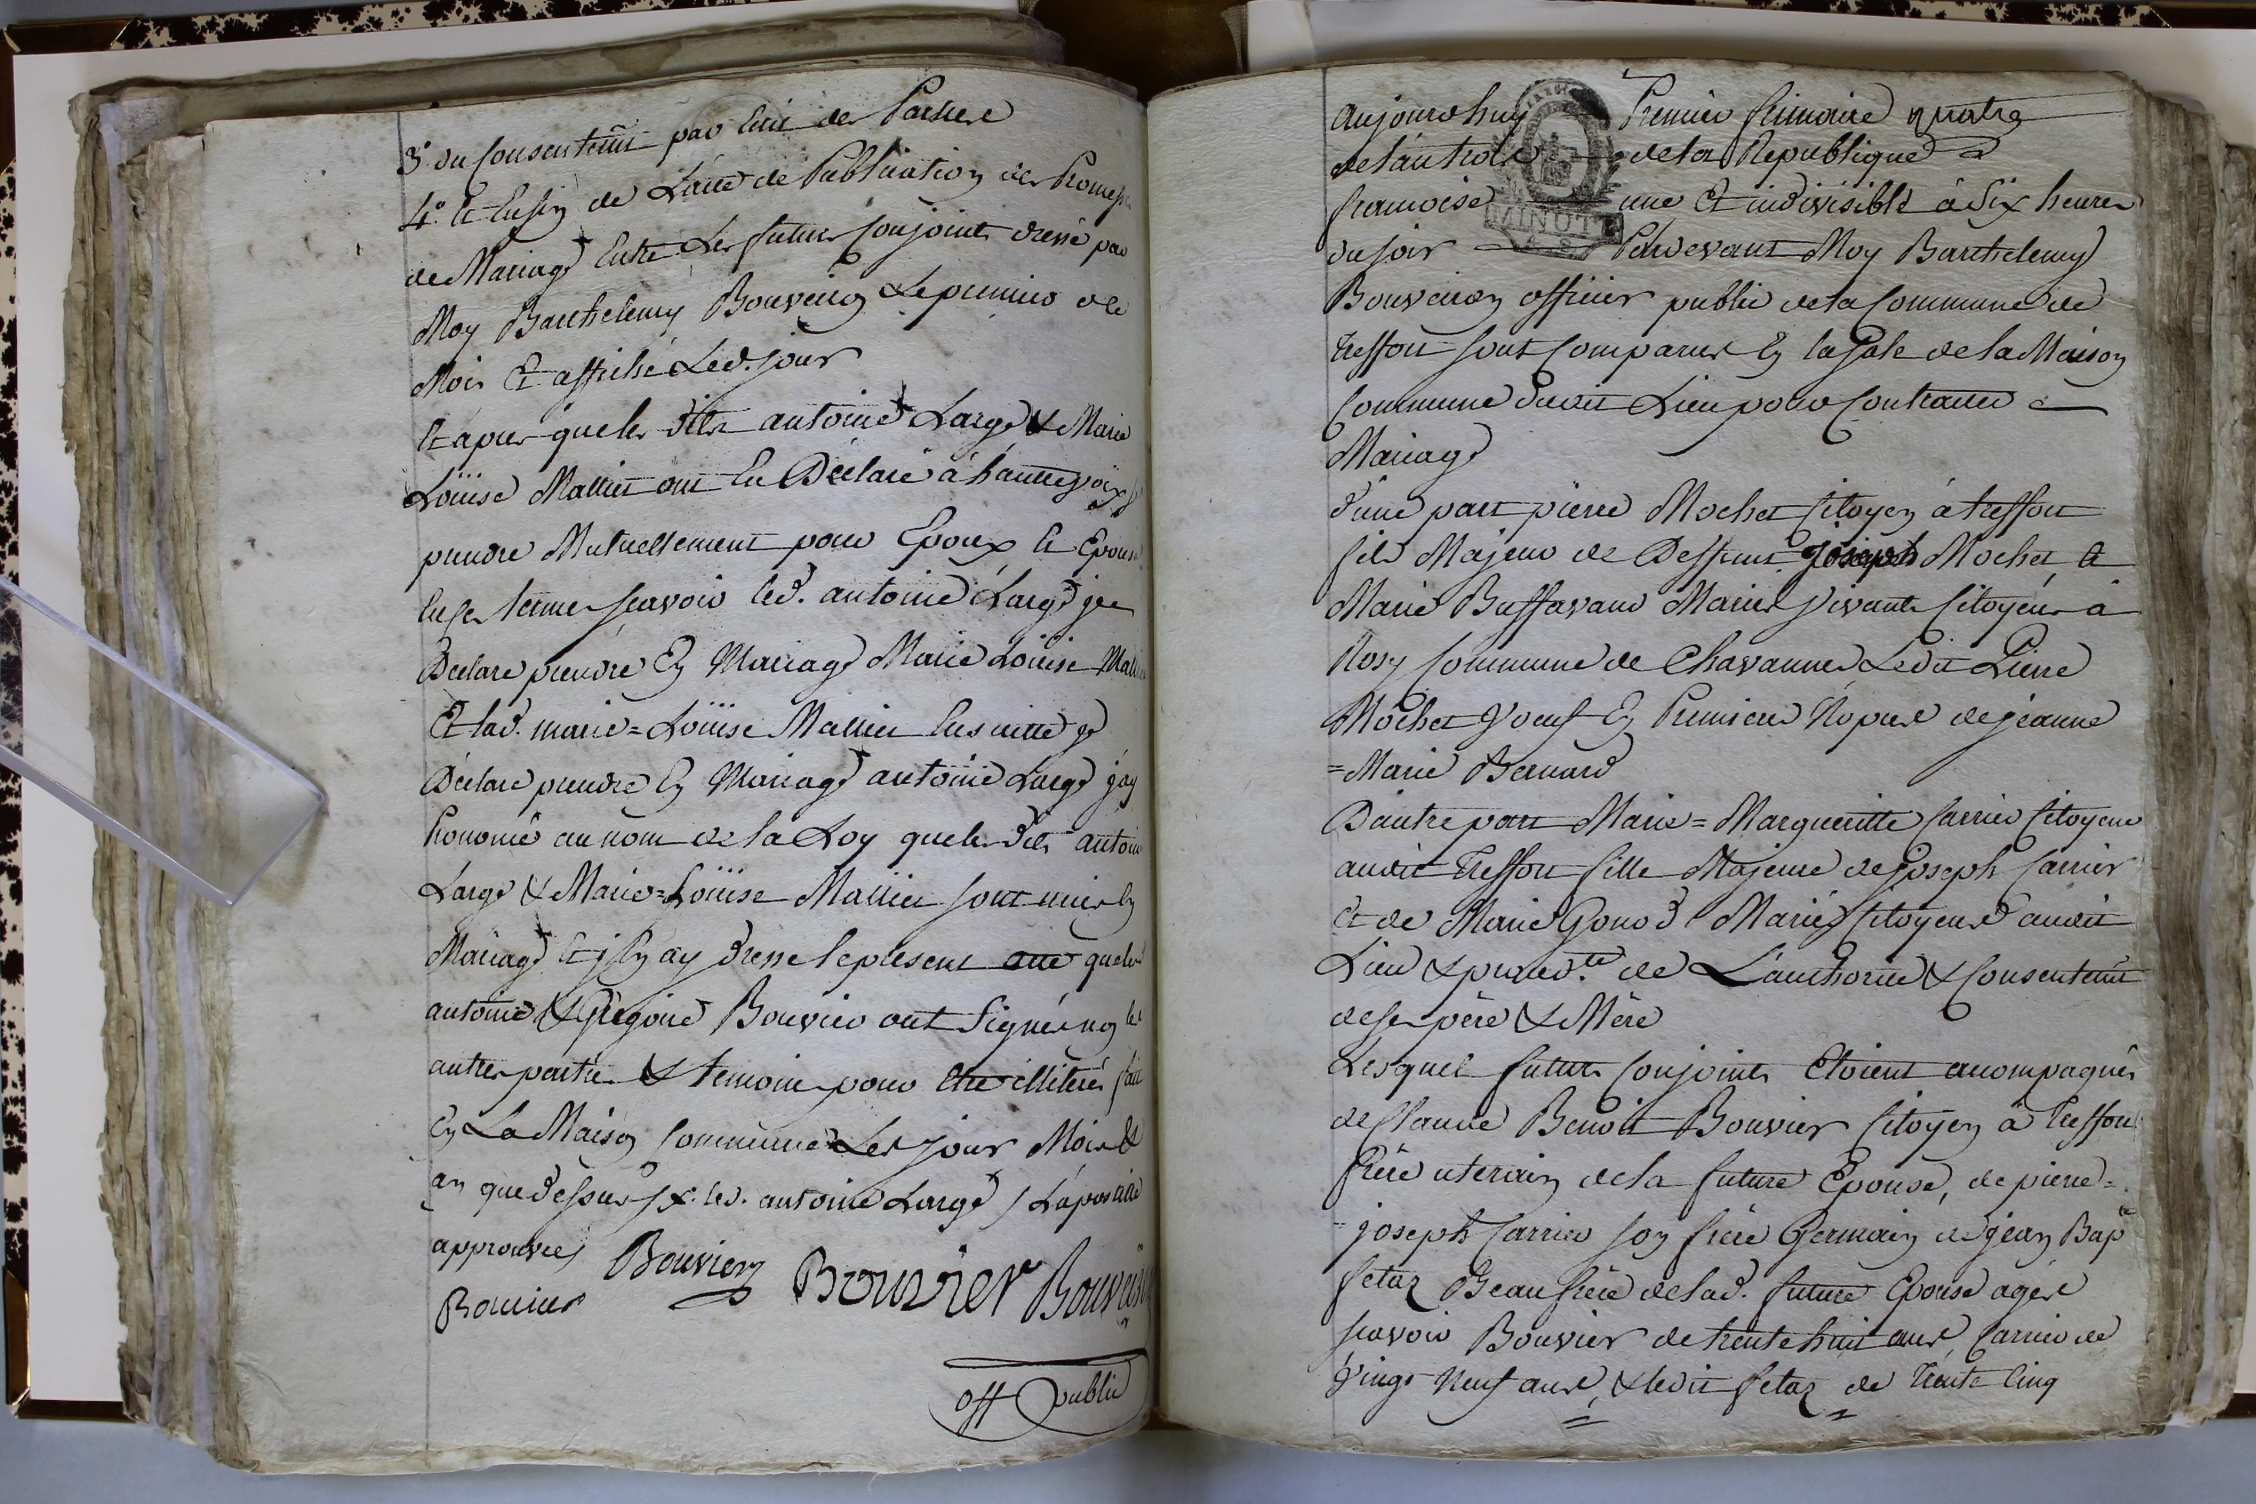 3.º du Consentemt par Ecrit des
4.º Et Enfin de L'acte de Publication des Promesses
de Mariage Entre Les futurs Conjoints dressé par
Moy Barthelemy Bouveiron Le premier de
Mois Et affiché Led. jour
Et apres que les dits antoine Large & Marie
Loüise Malliet ont Eu Déclaré à haute voix se
prendre Mutuellement pour Epoux Et Epouse
En ces termes scavoir led. antoine Large je
Déclare prendre En Mariage Marie Loüise
Et lad. marie=Loüise Mallier Ensuitte je
Déclare prendre En Mariage antoine Large j'ay
Prononcé au nom de la Loy que les dits antoine
Large & Marie=Loüise Mallier sont unis En
Mariage Et j'En ay dressé le present acte que led
antoine & Grégoire Bouvier ont Signés non les
autres parties & temoins pour Etre illiterés fait
En La Maison Commune Les jour Mois &
an que dessus led. antoine Large
approuvée
Bouvier Bouvier Bouveiron
Bouvier
off public
Aujourdhuy Premier frimaire quatre
de l'an trois de la Republique
françoise une Et indivisible à Six heures
du soir Pardevant Moy Barthelemy
Bouveiron officier public de la Commune de
Treffort sont Comparus En la Sale de la Maison
Commune dudit Lieu pour Contracter
Mariage
MINUTE
D'une part pierre Mochet Citoyen à treffort
fils Majeur de Deffunt joseph Mochet Et
Marie Buffavand Mariés vivants Citoyens à
Rosy Commune de Chavannes Ledit Pierre
Mochet Veuf En Premieres Nopces de jeanne
=Marie Bernard
D'autre part Marie=Margueritte Carrier Citoyene
audit Treffort fille Majeure de joseph Carrier
Et de Marie Gonod Mariés Citoyens audit
Lieu & proced.te de L'authorité & Consentemt
de ses père & Mère
Lesquels futurs Conjoints Etoient acompagnés
de Claude Benoit Bouvier Citoyen à Treffort
frère uterain de la future Epouse, de pierre=
=joseph Carrier son frère Germain de jean Bap.te
fetaz Beaufrère de lad. future Epouse agés
scavoir Bouvier de trente huit ans, Carrier de
Vingt Neuf ans, & ledit fetaz de Trente Cinq